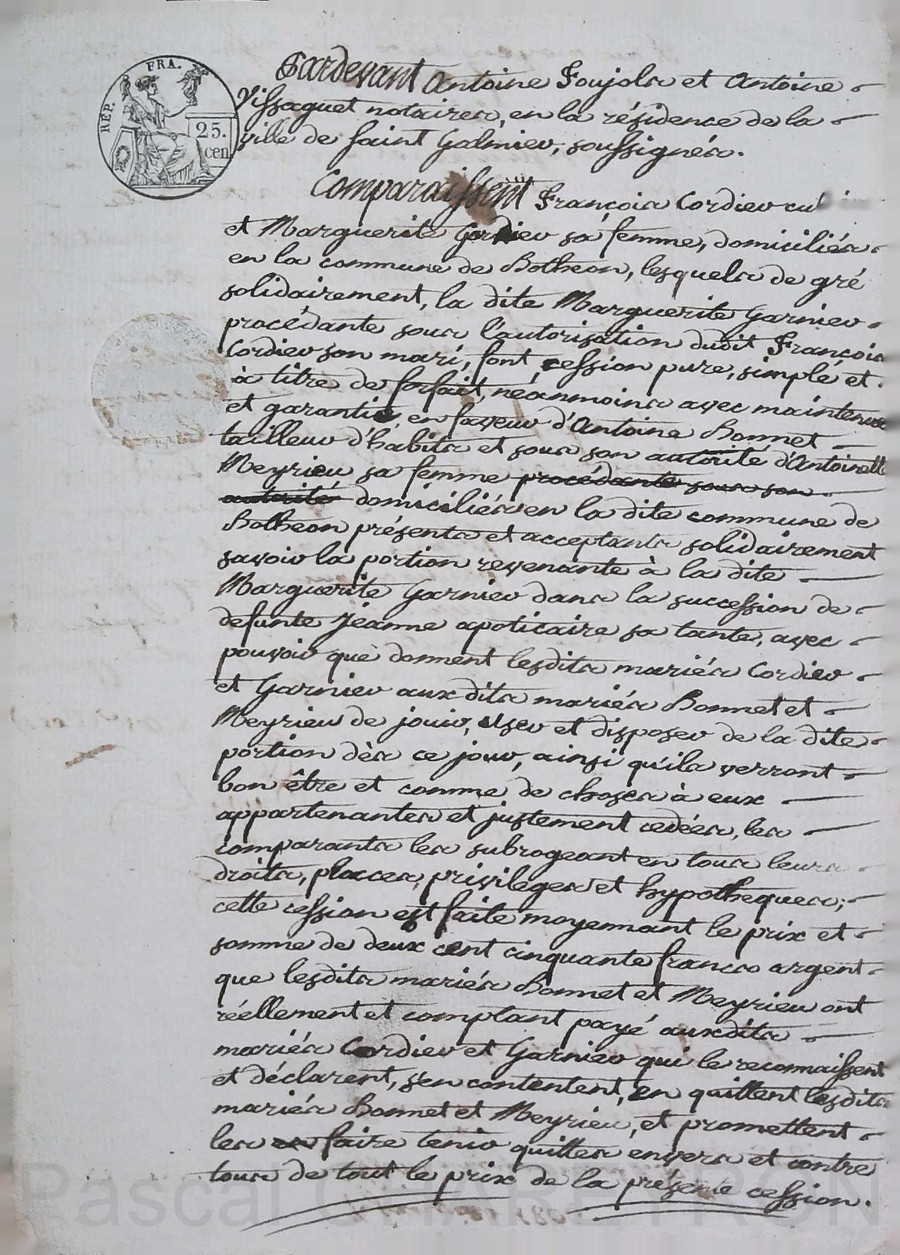 RÉP. FRA.
25.
cen
Pardevant Antoine Foujols et Antoine
Vissaguet notaires, en la résidence de la
ville de saint Galmier, soussignés.
Comparaissent François Cordier
et Marguerite Garnier sa femme, domiciliés
en la commune de Botheon, lesquels de gré
solidairement, la dite Marguerite Garnier
procédante sous l'autorisation dudit François
Cordier son mari, font cession pure, simple et
à titre de forfait, néanmoins avec maintenue
et garantie, en faveur d'Antoine Bonnet
tailleur d'habits et sous son autorité d'Antoinette
Meyrieu sa femme procédante sous son
autorité domiciliés en la dite commune de
Botheon présents et acceptants solidairement
savoir la portion revenante à la dite
Marguerite Garnier dans la succession de
defunte Jeanne apoticaire sa tante, avec
pouvoir que donnent lesdits mariés Cordier
et Garnier aux dits mariés Bonnet et
Meyrieu de jouir, user et disposer de la dite
portion dès ce jour, ainsi qu'ils verront
bon être et comme de choses à eux
appartenantes et justement cedées, les
comparants les subrogeant en tous leurs
droits, places, privileges et hypotheques;
cette cession est faite moyennant le prix et
somme de deux cent cinquante francs argent
que lesdits mariés Bonnet et Meyrieu ont
réellement et comptant payé auxdits
mariés Cordier et Garnier qui le reconnaissent
et déclarent, s'en contentent, en quittent lesdits
mariés Bonnet et Meyrieu, et promettent
les faire tenir quittes envers et contre
tous de tout le prix de la présente cession.
Pascal CHAREYRON